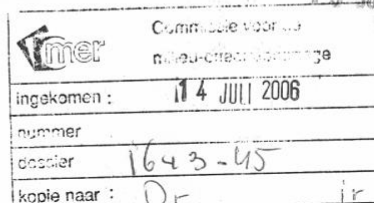 mer
Commissie voor de
milieu-effectrapportage
ingekomen : 14 JULI 2006
nummer
dossier 1643-45
kopie naar :